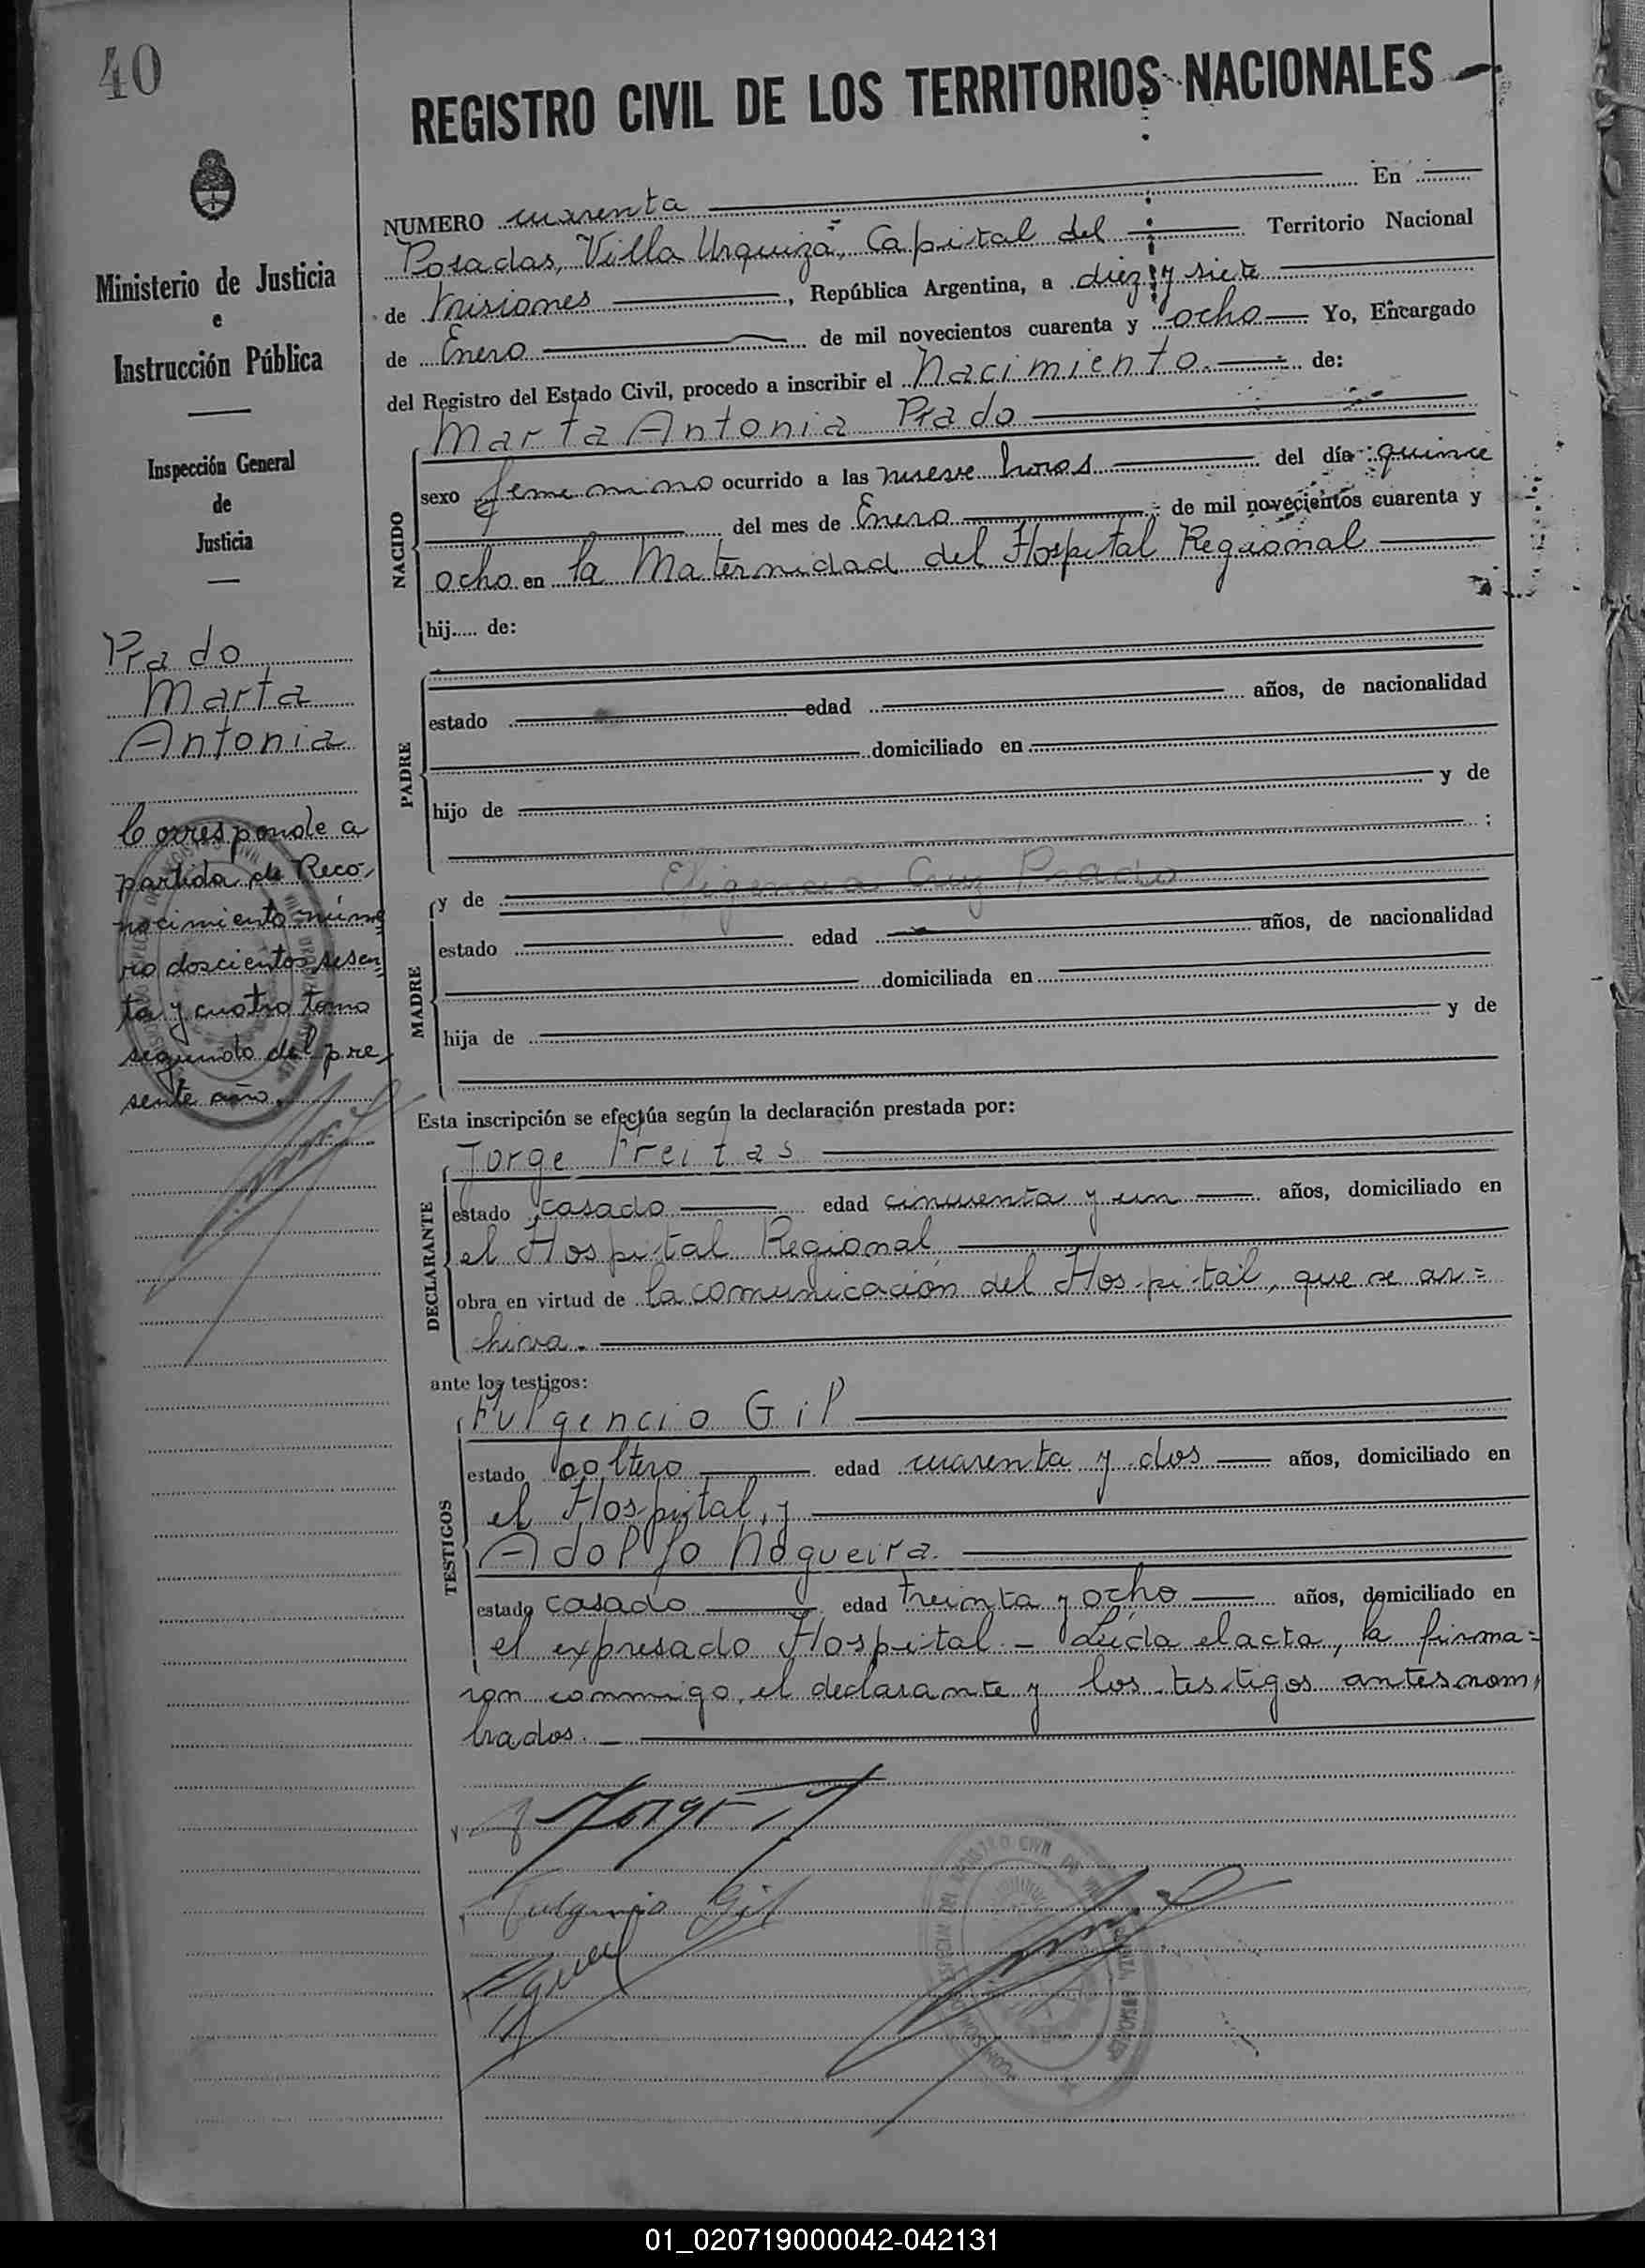 40
REGISTRO CIVIL DE LOS TERRITORIOS NACIONALES
Ministerio de Justicia
e
Instrucción Pública
Inspección General
de
Justicia
Prado
Marta
Antonia
Corresponde a
partida de Reco-
nocimiento núme
ro doscientos sesen
ta y cuatro tomo
segundo del pre-
sente año.
NUMERO cuarenta En
Posadas, Villa Urquiza, Capital del Territorio Nacional
de Misiones, República Argentina, a diez y siete
de Enero de mil novecientos cuarenta y ocho Yo, Encargado
del Registro del Estado Civil, procedo a inscribir el Nacimiento. de:
Marta Antonia Prado
NACIDO
sexo femenino ocurrido a las nueve horas del día quince
del mes de Enero de mil novecientos cuarenta y
ocho en la Maternidad del Hospital Regional
hij..... de:
PADRE
estado edad años, de nacionalidad
domiciliado en
hijo de y de
;
MADRE
y de Cruz Prado
estado edad años, de nacionalidad
domiciliada en
hija de y de
Esta inscripción se efectúa según la declaración prestada por:
DECLARANTE
Jorge Freitas
estado casado edad cincuenta y un años, domiciliado en
el Hospital Regional
obra en virtud de la comunicación del Hospital, que se ar=
chiva.
ante los testigos:
TESTIGOS
Fulgencio Gil
estado soltero edad cuarenta y dos años, domiciliado en
el Hospital, y
Adolfo Nogueira.
estado casado edad treinta y ocho años, domiciliado en
el expresado Hospital - Leída el acta, la firma=
ron conmigo, el declarante y los testigos antes nom
brados. -
Fulgencio Gil
01_020719000042-042131